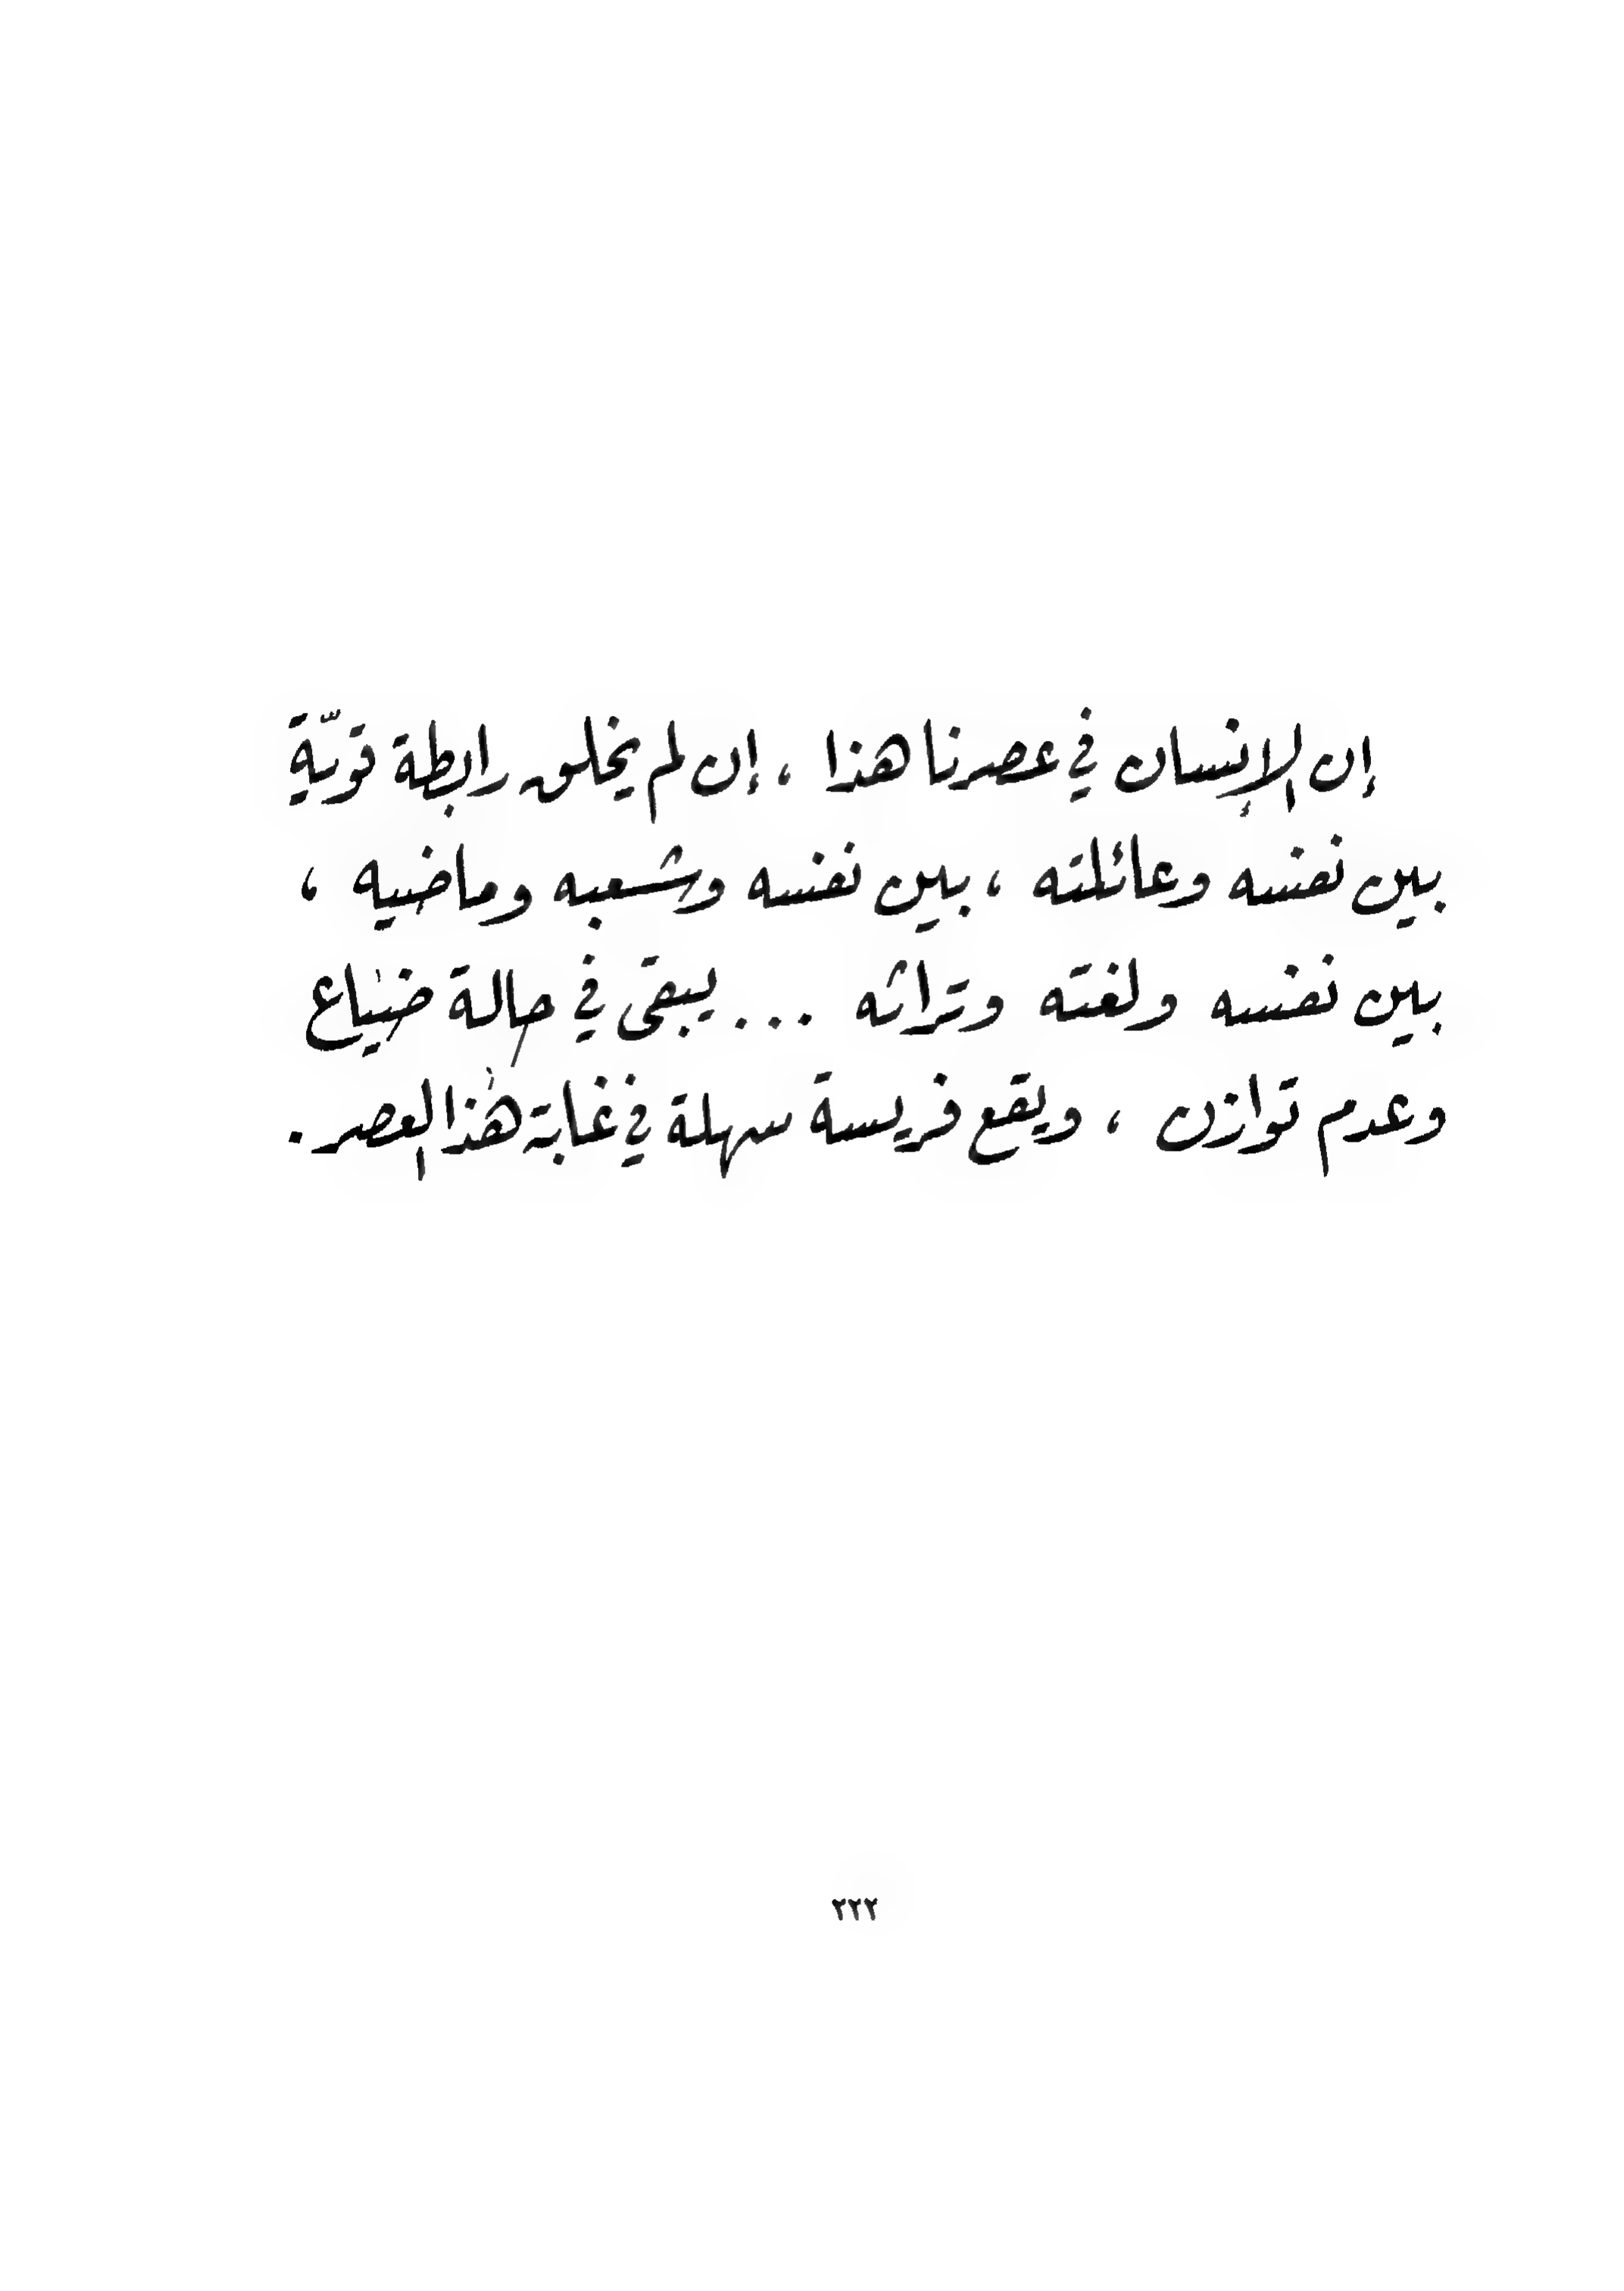 إن الإنسان في عصرنا هذا ، إن لم يخلق رابطة قويّة
بين نفسه وعائلته ، بين نفسه وشعبه وماضيه ،
بين نفسه ولغته وتراثه ... يبقى في حالة ضياع
وعدم توازن ، ويقع فريسة سهلة في غابة هذا العصر .
٢٢٢